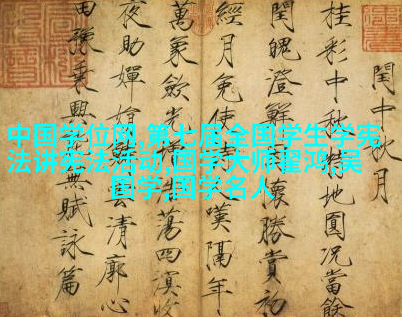 中国学位网,第七届全国学生学宪
法讲宪法活动,国学大师翟鸿,吴
国学,国学名人
閏中秋月
桂彩中秋特地圓况當餘
閏魄澄鮮懷勝賞初
經月免使人嘆隔年
萬象歛光蕩四溟收
夜助嬋娟雲清廓心
田豫乘興無賦詠篇